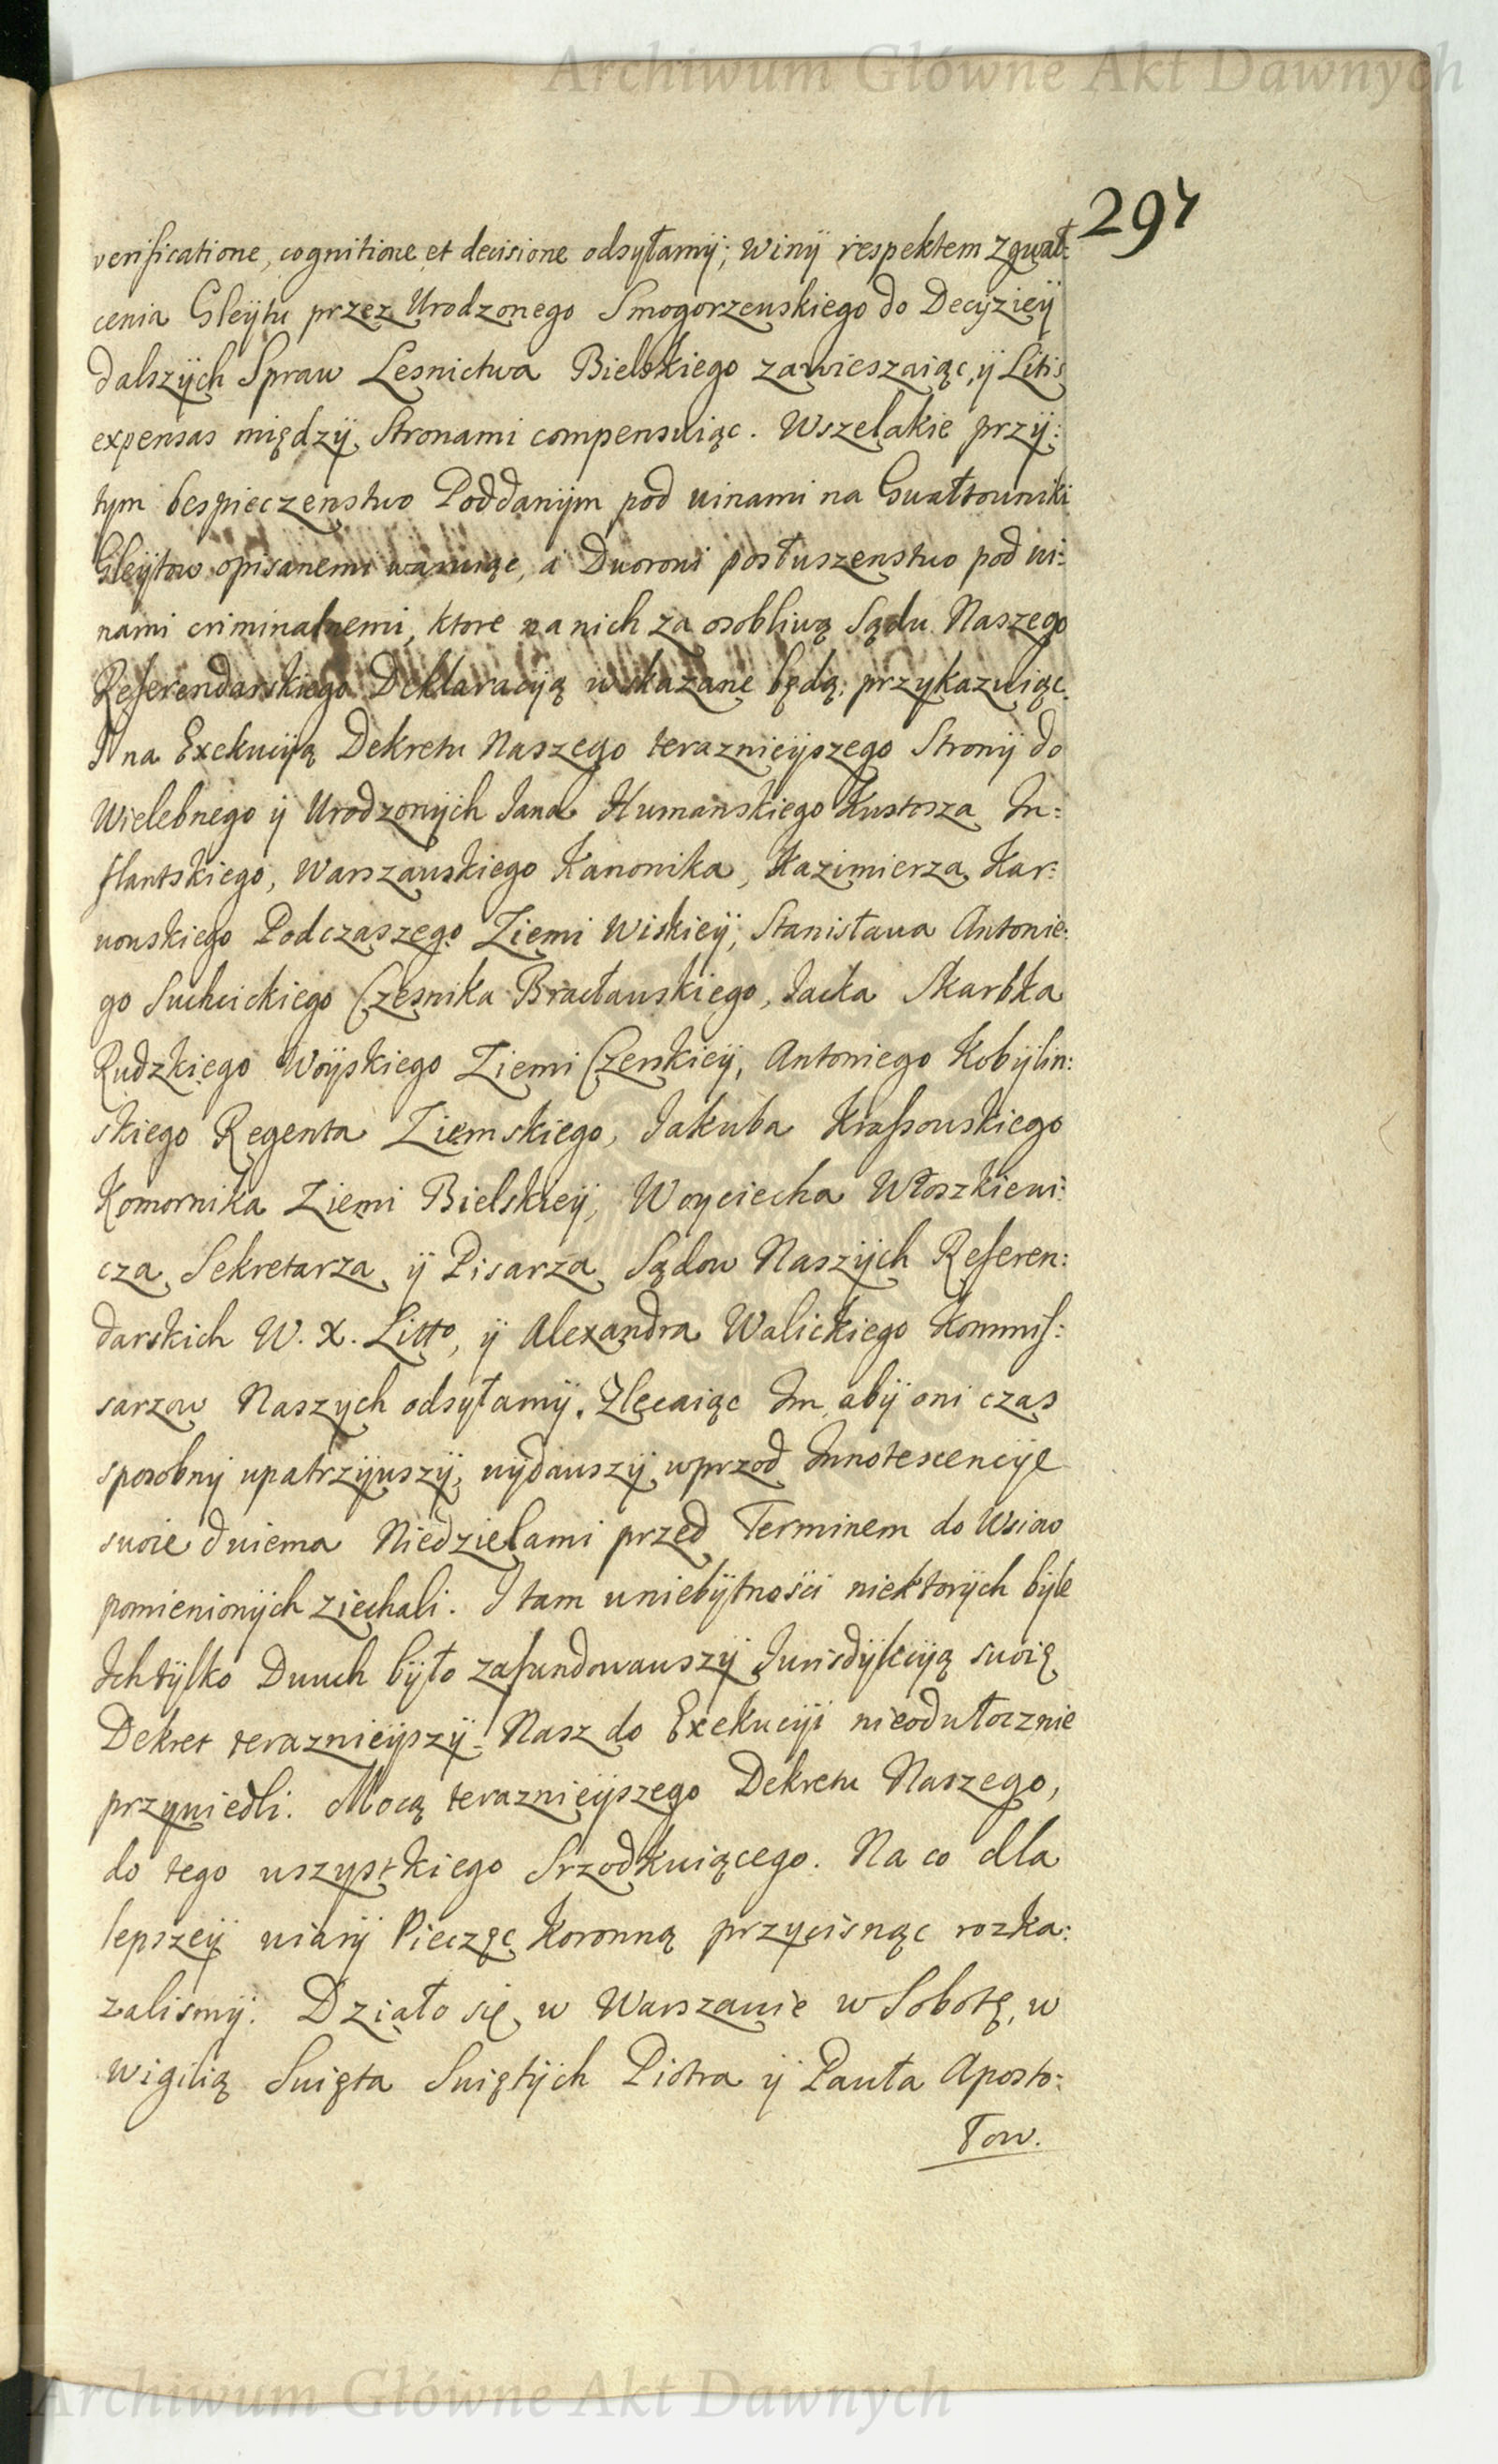 Archiwum Główne Akt Dawnych
297
verificatione, cognitione et decisione odsyłamÿ; Winÿ respektem Zgwał:
cenia Gleÿtu przez Urodzonego Smogorzewskiego do Decÿzieÿ
dalszÿch Spraw Lesnictwa Bielskiego zawieszaiąc, ÿ Litis
expensas międzÿ Stronami compensuiąc. Wszelakie przÿ:
tym bespieczenstwo Poddanÿm pod winami na Gwałtowniki
Gleÿtow opisanemi waruiąc, a Dworowi posłuszenstwo pod wi:
nami criminalnemi, ktore na nich za osobliwą Sądu Naszego
Referendarskiego Deklaracÿą wskazane będą, przykazuiąc.
I na Exekucÿą Dekretu Naszego teraznieÿszego Stronÿ do
Wielebnego ÿ Urodzonÿch Jana Humanskiego Kustosza In:
flantskiego, Warszawskiego Kanonika, Kazimierza Kar:
wowskiego Podczaszego Ziemi Wiskieÿ, Stanisława Antonie:
go Suchcickiego Czesnika Bracławskiego, Jacka Skarbka
Rudzkiego Woÿskiego Ziemi Czerskieÿ, Antoniego Kobÿlin:
skiego Regenta Ziemskiego, Jakuba Krassowskiego
Komornika Ziemi Bielskieÿ, Woyciecha Włoszkiewi:
cza Sekretarza ÿ Pisarza Sądow Naszÿch Referen:
darskich W. X. Litto, ÿ Alexandra Walickiego Kommis:
sarzow Naszych odsyłamÿ. Zlecaiąc Im, abÿ oni czas
sposobny upatrzÿwszÿ, wÿdawszÿ wprzod Innotescencÿe
swoie dwiema Niedzielami przed Terminem do Wsiow
pomienionÿch ziechali. I tam wniebÿtnosci niektorÿch bÿle
Ich tÿlko Dwuch bÿło zafundowawszÿ Jurisdÿkcÿą swoię
Dekret teraznieÿszÿ Nasz do Exekucÿi nieodwłocznie
przywiedli. Mocą teraznieÿszego Dekretu Naszego,
do tego wszystkiego Srzodkuiącego. Na co dla
lepszeÿ wiarÿ Pieczęc Koronną przycisnąc rozka:
zalismÿ. Działo się w Warszawie w Sobotę, w
Wigilią Swięta Swiętÿch Piotra ÿ Pawła Aposto:
łow.
Archiwum Główne Akt Dawnych